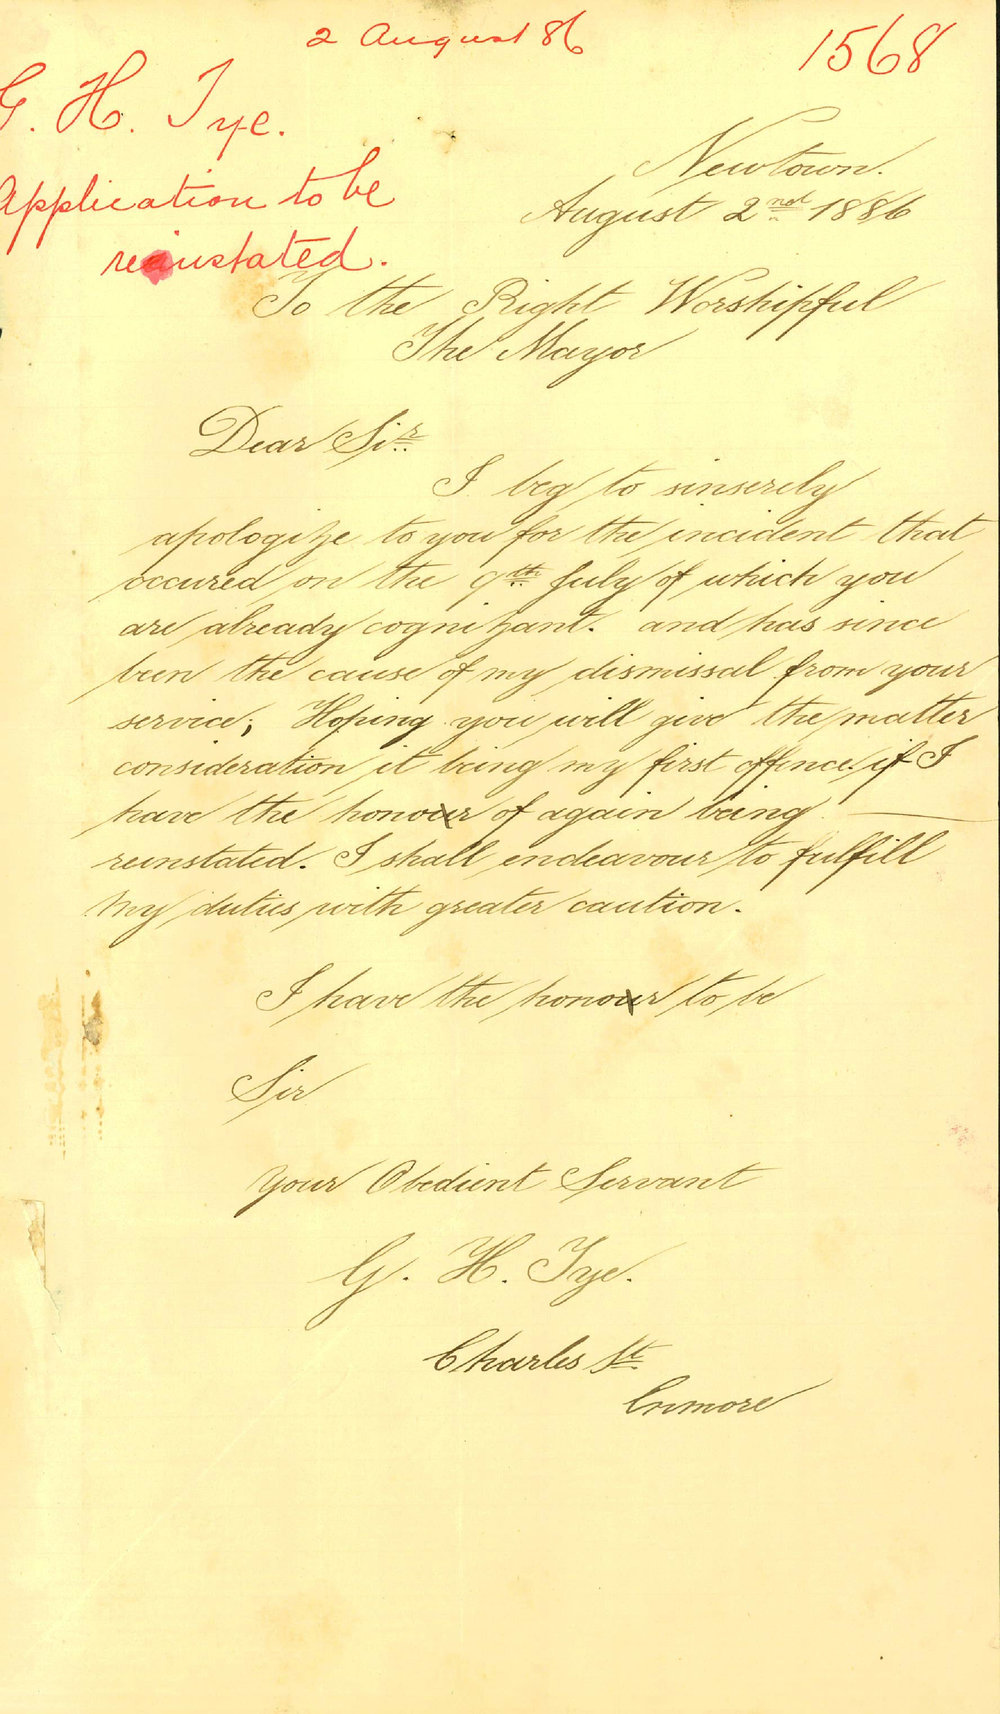 2 August 86
1568
G. H. Tye.
Application to be
reinstated.
Newtown.
August 2nd 1886
To the Right Worshipful
The Mayor
Dear Sir
I beg to sinserely
apologize to you for the incident that
occured on the 9th July of which you
are already cognizant. and has since
been the cause of my dismissal from your
service; Hoping you will give the matter
consideration it being my first offence. if I
have the honour of again being
reinstated. I shall endeavour to fulfill
My duties with greater caution.
I have the honour to be
Sir
Your Obedient Servant
G. H. Tye.
Charles St.
Enmore